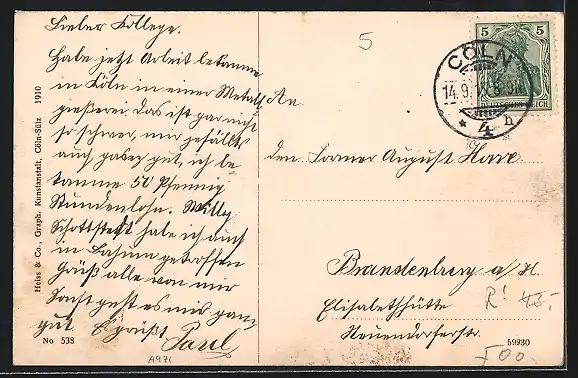 Lieber Kollege.
Habe jetzt Arbeit bekomme
in Köln in einer Metall
gießerei das ist gar nicht
so schwer, mir gefällts
auch ganz gut, ich be
komme 50 Pfennig
Stundenlohn. Willy
Schottstedt habe ich auch
in Bahnen getroffen
Grüß alle von mir
Sonst geht es mir ganz
gut Es grüßt
Paul
No 538
A971
Heiss & Co., Graph. Kunstanstalt, Cöln-Sülz 1910
5
5 5
DEUTSCHES REICH
CÖLN
14.9.
* 4 h
An
den Former August Horre
Brandenburg a/H.
Elisabethhütte
Neuendorferstr.
59930